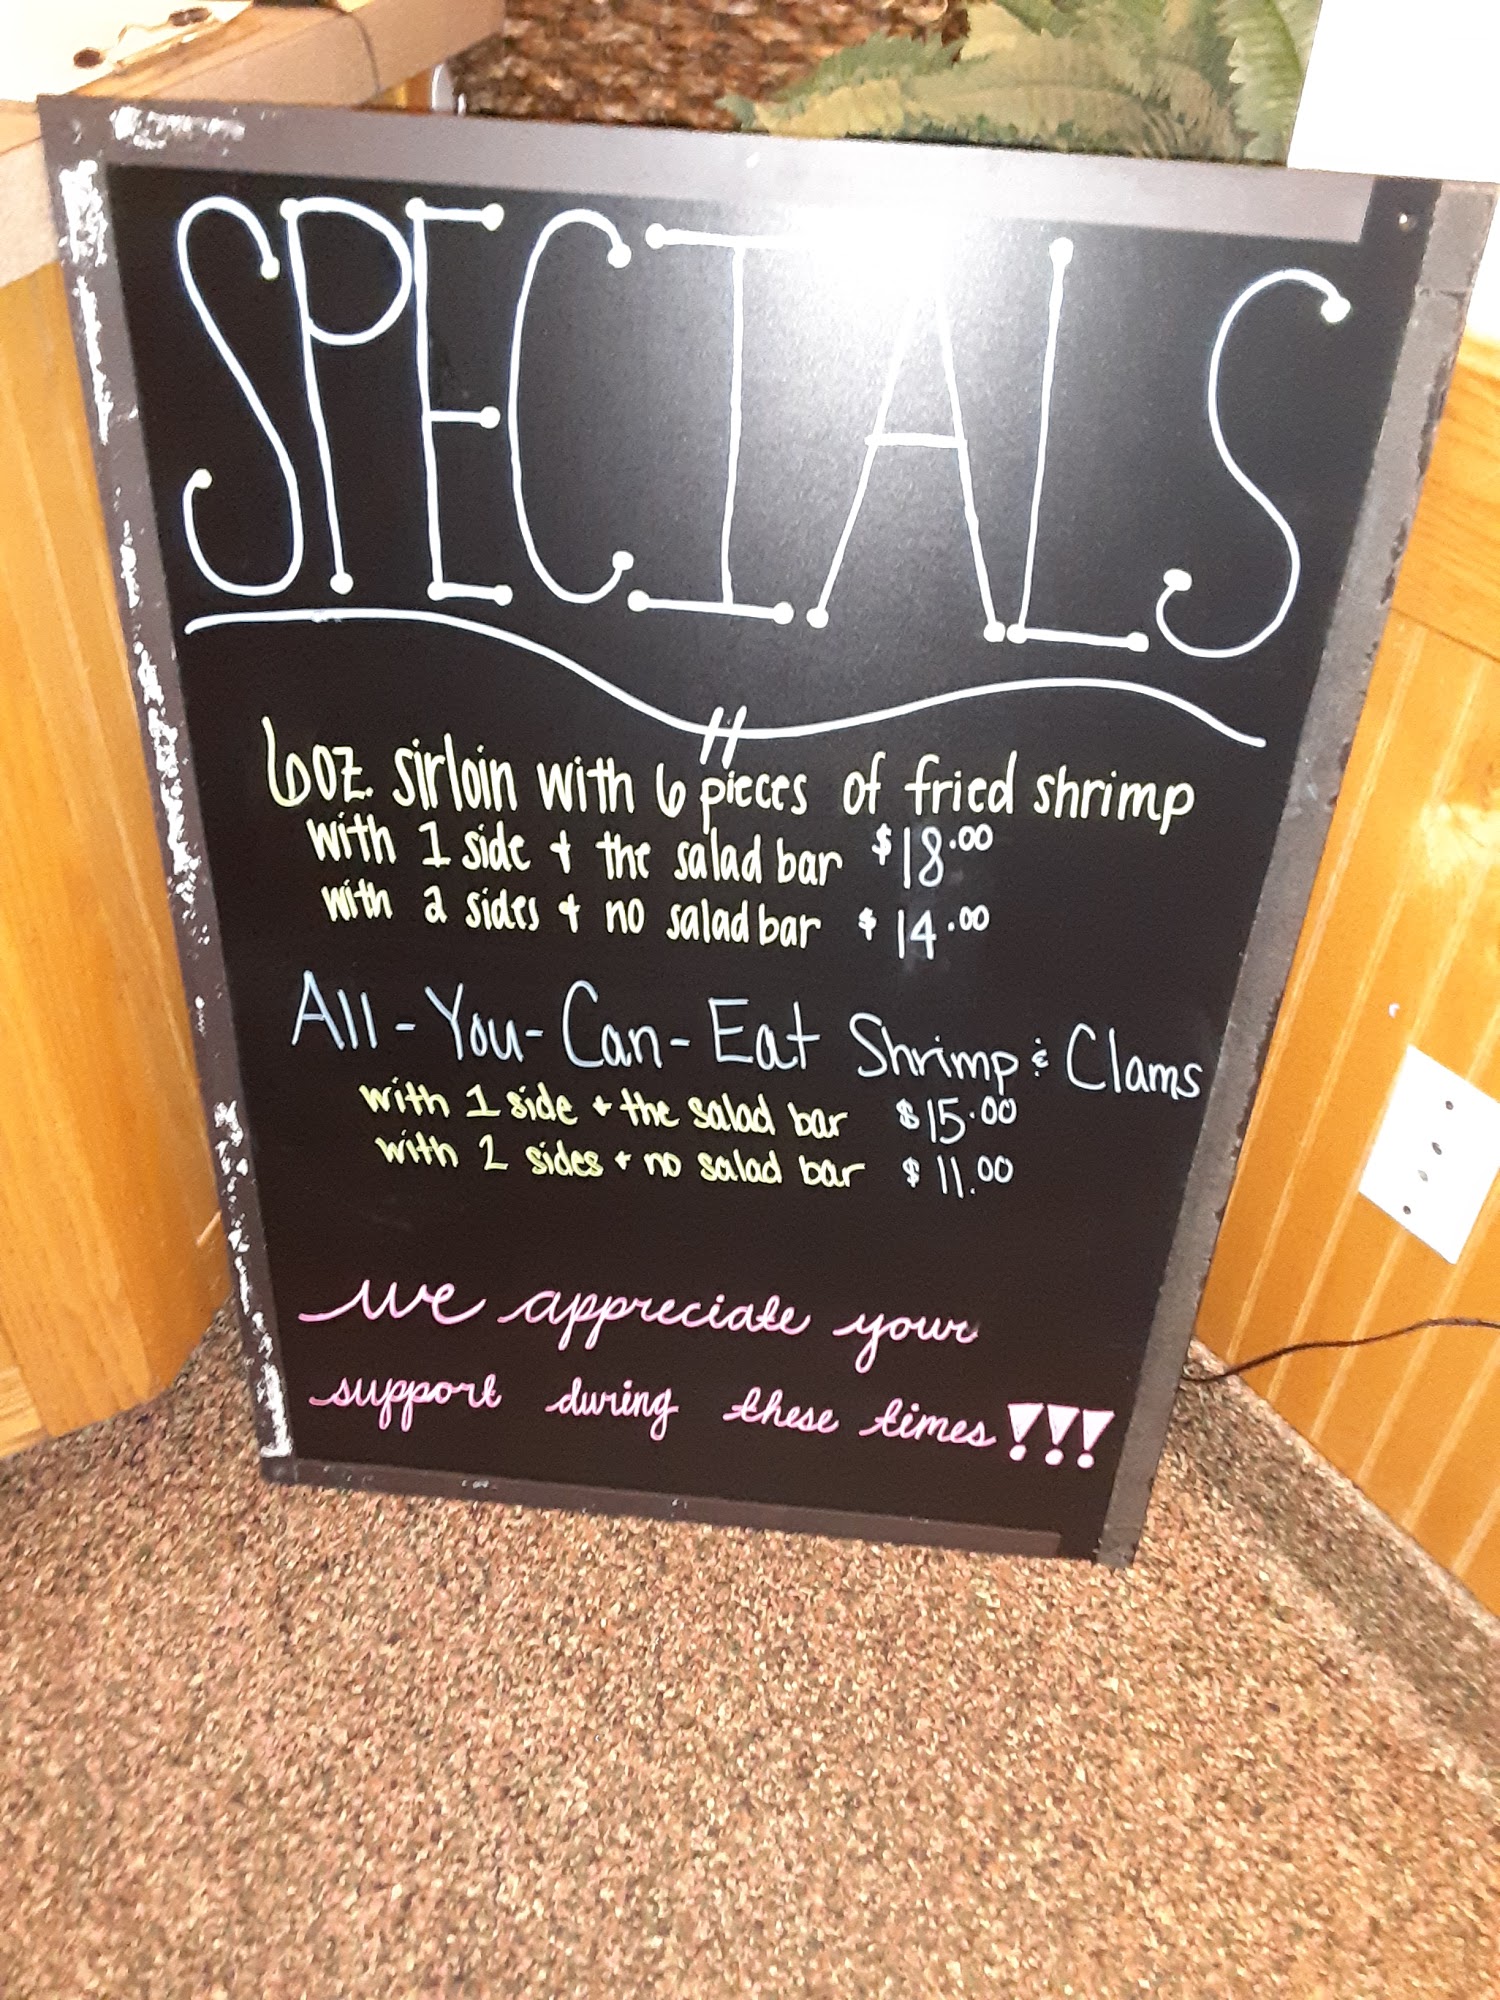 SPECIALS
6oz. sirloin with 6 pieces of fried shrimp
with 1 side + the salad bar $18.00
with 2 sides + no salad bar $14.00
All-You-Can-Eat Shrimp & Clams
with 1 side + the salad bar $15.00
with 2 sides + no salad bar $11.00
we appreciate your
support during these times!!!